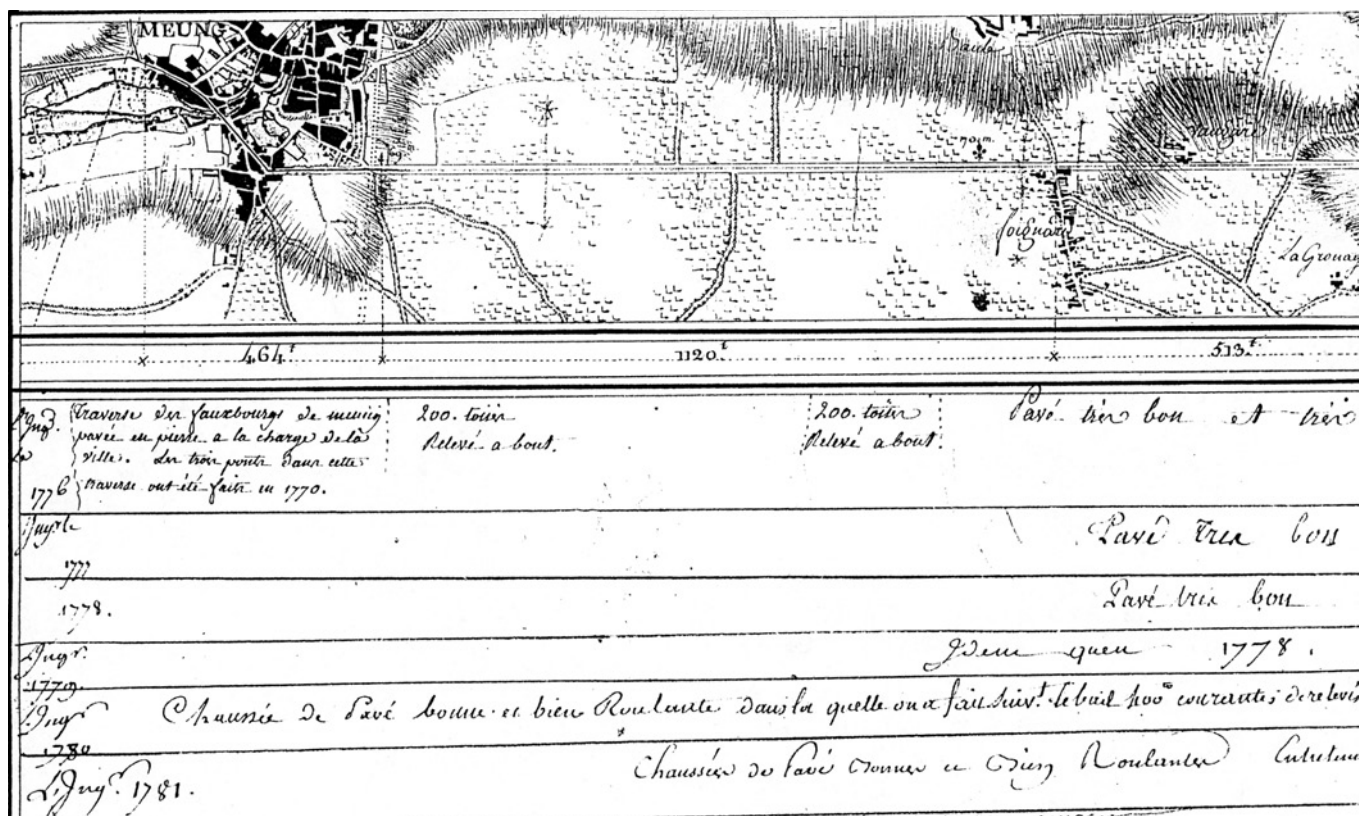 MEUNG
70.m.
La Grouay
464.t
1120.t
513.t
Traverse des fauxbourgs de meung
pavée en pierre a la charge de la
ville. Les trois ponts dans cette
traverse ont été faits en 1770.
1776
200. toises
Relevé a bout.
200. toises
Relevé a bout.
Pavé très bon et très
1777
Pavé tres bon
1778.
Pavé tres bon
Ingr.
1779.
Idem quen 1778.
L'Ingr.
1780
Chaussée de Pavé bonne et bien Roulante dans la quelle on a fait suiv.t le bail courantes de relevés
L'Ingr. 1781.
Chaussées de Pavé Bonnes et Bien Roulantes